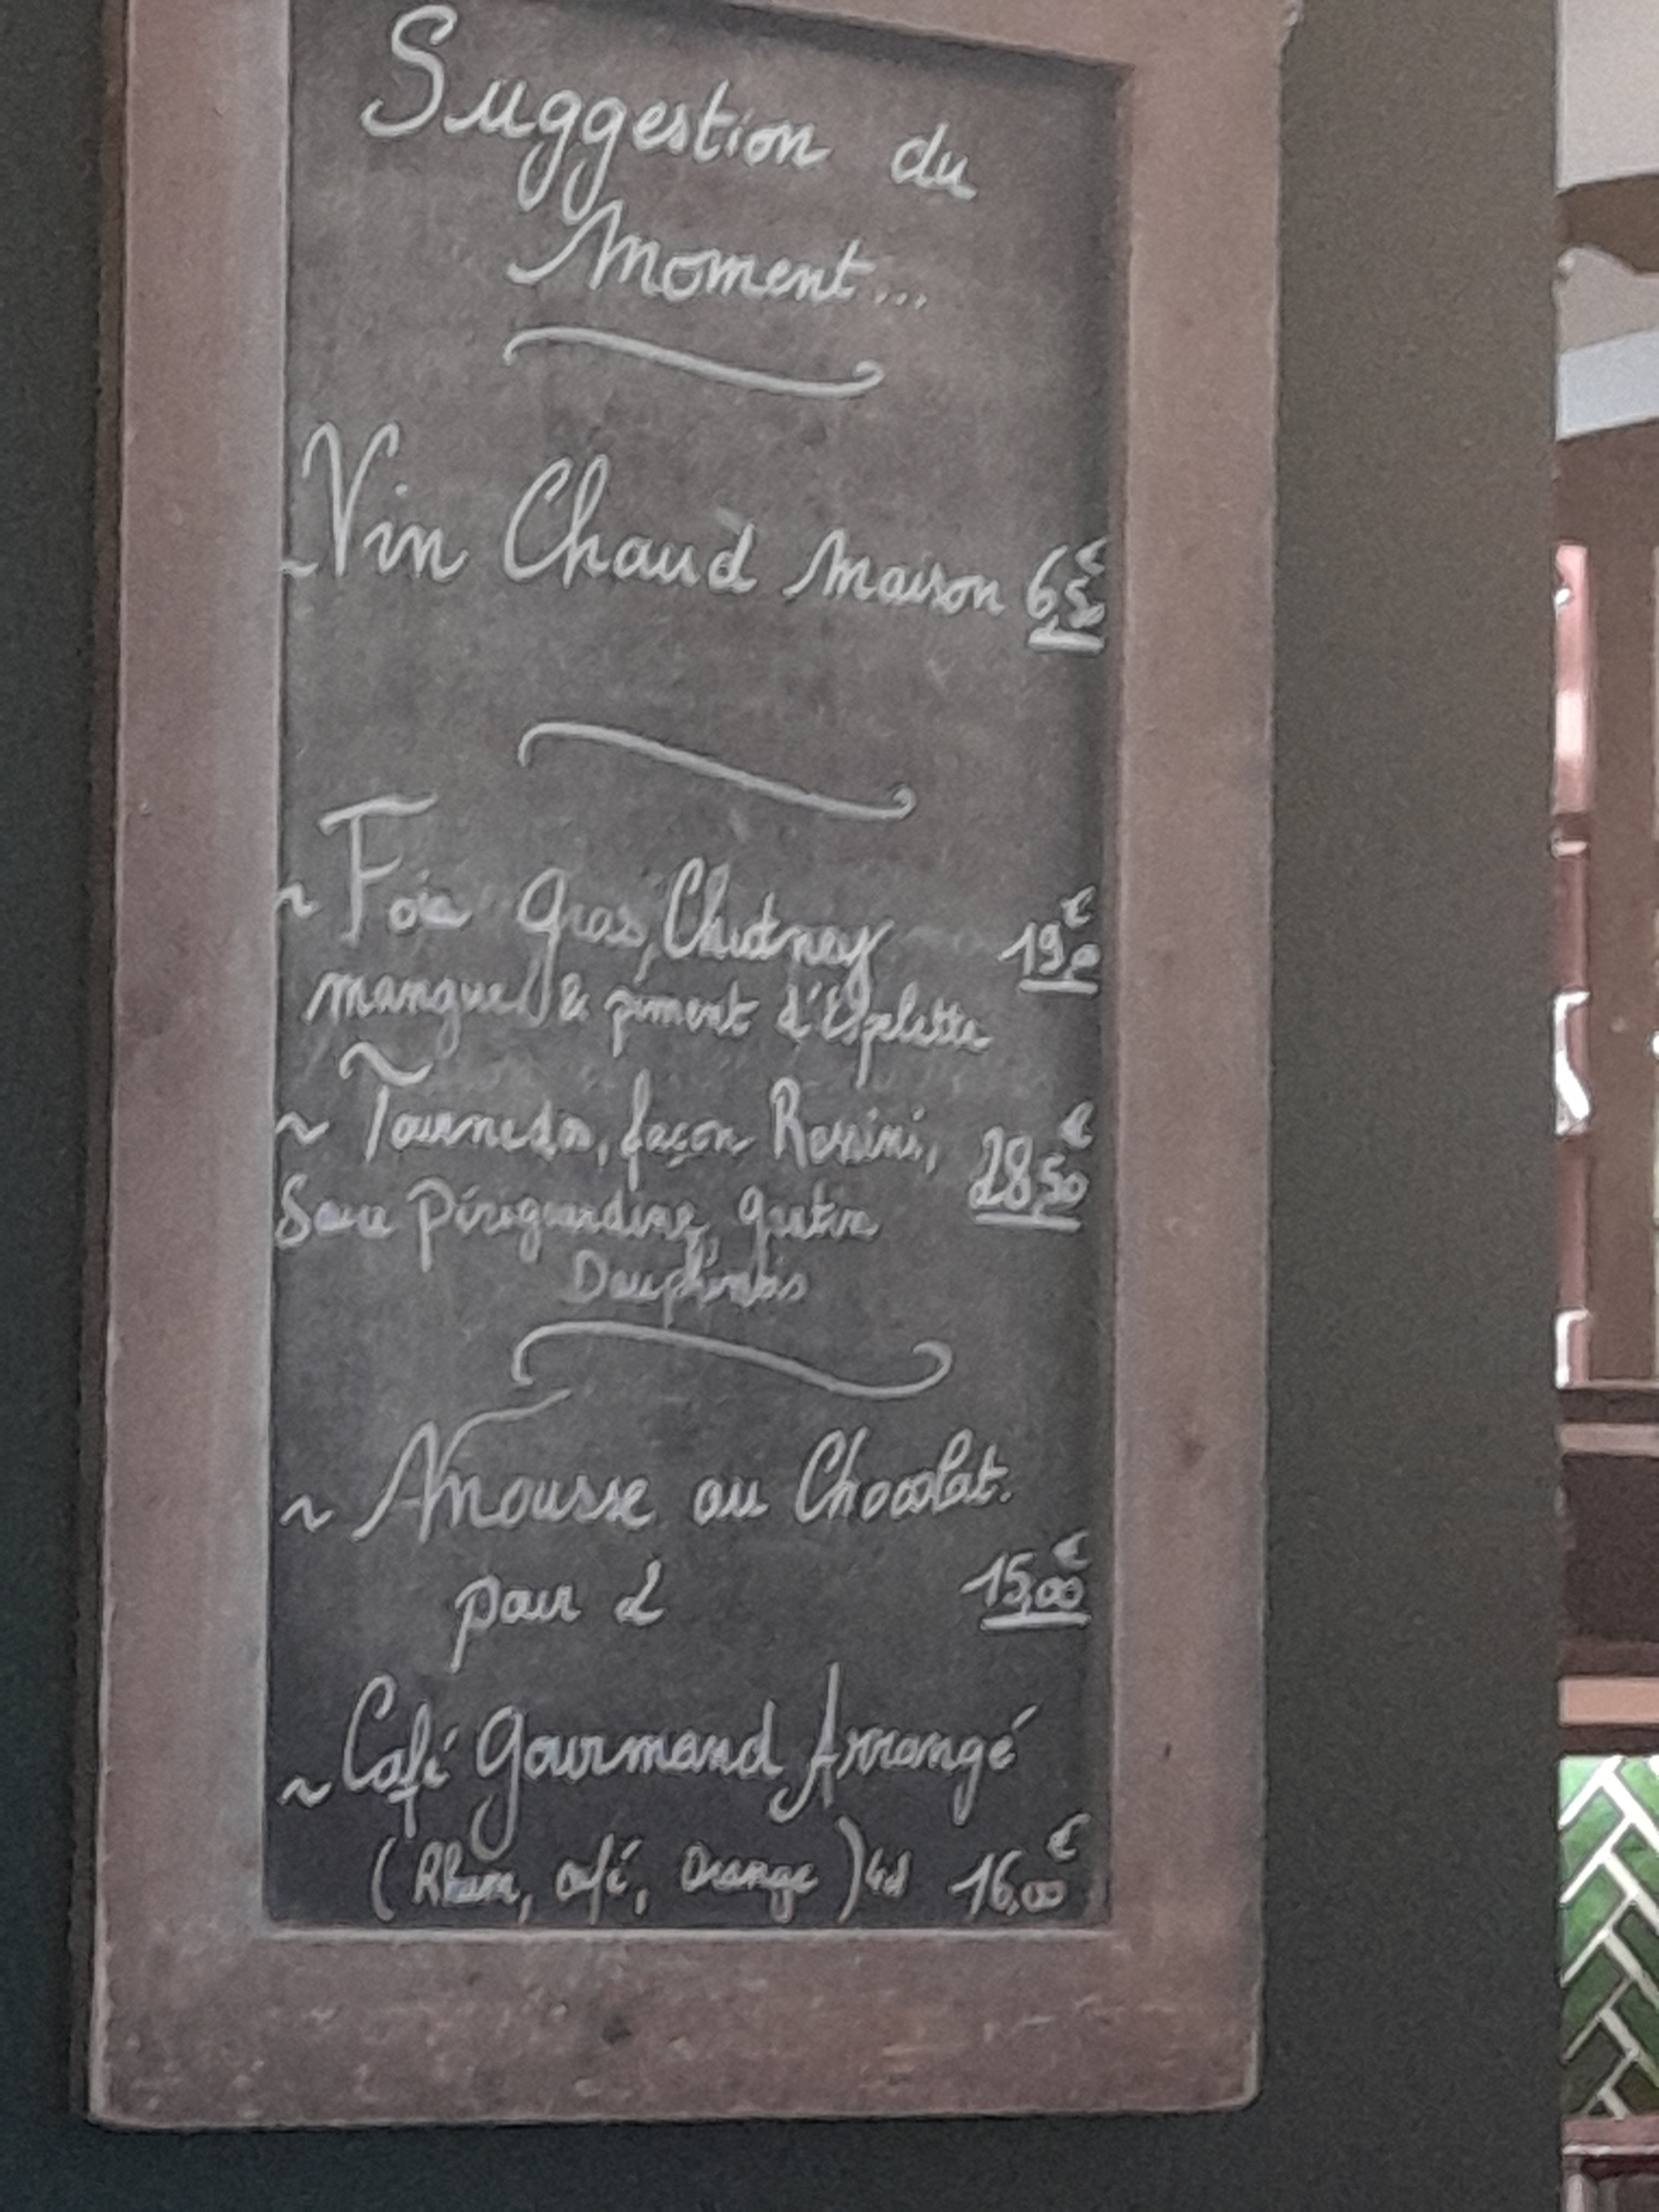 Suggestion du
Moment...
~ Vin Chaud Maison 6,50€
~ Foie Gras, Chutney 19,0€
mangue & piment d'Espelette
~ Tournedos, façon Rossini, 28,50€
Sauce Périgourdine, gratin
Dauphinois
~ Mousse au Chocolat.
pour 2 15,00€
~ Café Gourmand Arrangé
(Rhum, café, Orange) 4cl 16,00€